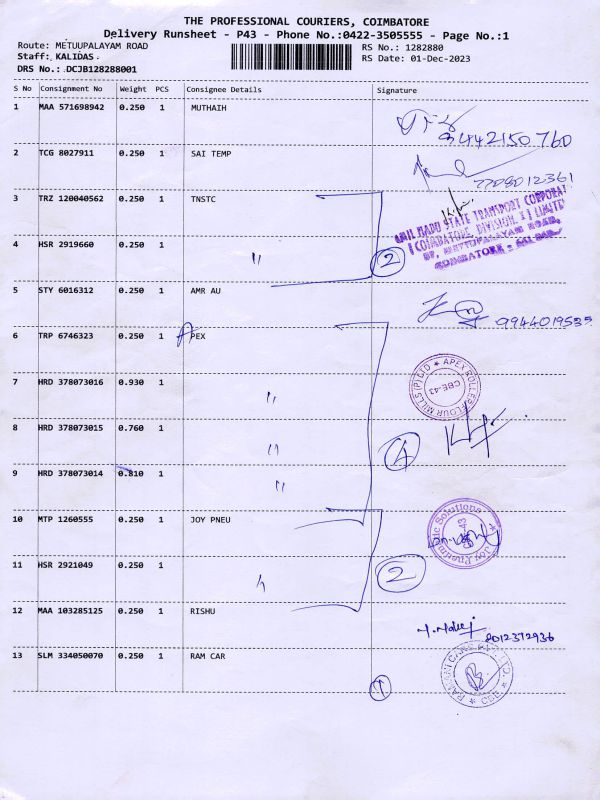 THE PROFESSIONAL COURIERS, COIMBATORE
Delivery Runsheet - P43 - Phone No.:0422-3505555 - Page No.:1
Route: METUUPALAYAM ROAD
RS No.: 1282880
Staff: KALIDAS
RS Date: 01-Dec-2023
DRS No.: DCJB128288001
S No Consignment No Weight PCS Consignee Details Signature
1 MAA 571698942 0.250 1 MUTHAIH
9442150760
2 TCG 8027911 0.250 1 SAI TEMP
7708012361
3 TRZ 120040562 0.250 1 TNSTC
TAMIL NADU STATE TRANSPORT CORPORATION
(COIMBATORE, DIVISION, I) LIMITED
METTUPALAYAM ROAD,
COIMBATORE
4 HSR 2919660 0.250 1 〃 2
5 STY 6016312 0.250 1 AMR AU
9944019535
6 TRP 6746323 0.250 1 APEX
7 HRD 378073016 0.930 1 〃
APEX ROLLER FLOUR MILLS (P) LTD ★
CBE-43
8 HRD 378073015 0.760 1 〃 4
9 HRD 378073014 0.810 1 〃
10 MTP 1260555 0.250 1 JOY PNEU
Joy Pneumatic Solutions
11 HSR 2921049 0.250 1 〃 2
12 MAA 103285125 0.250 1 RISHU
8012372936
13 SLM 334050070 0.250 1 RAM CAR
1